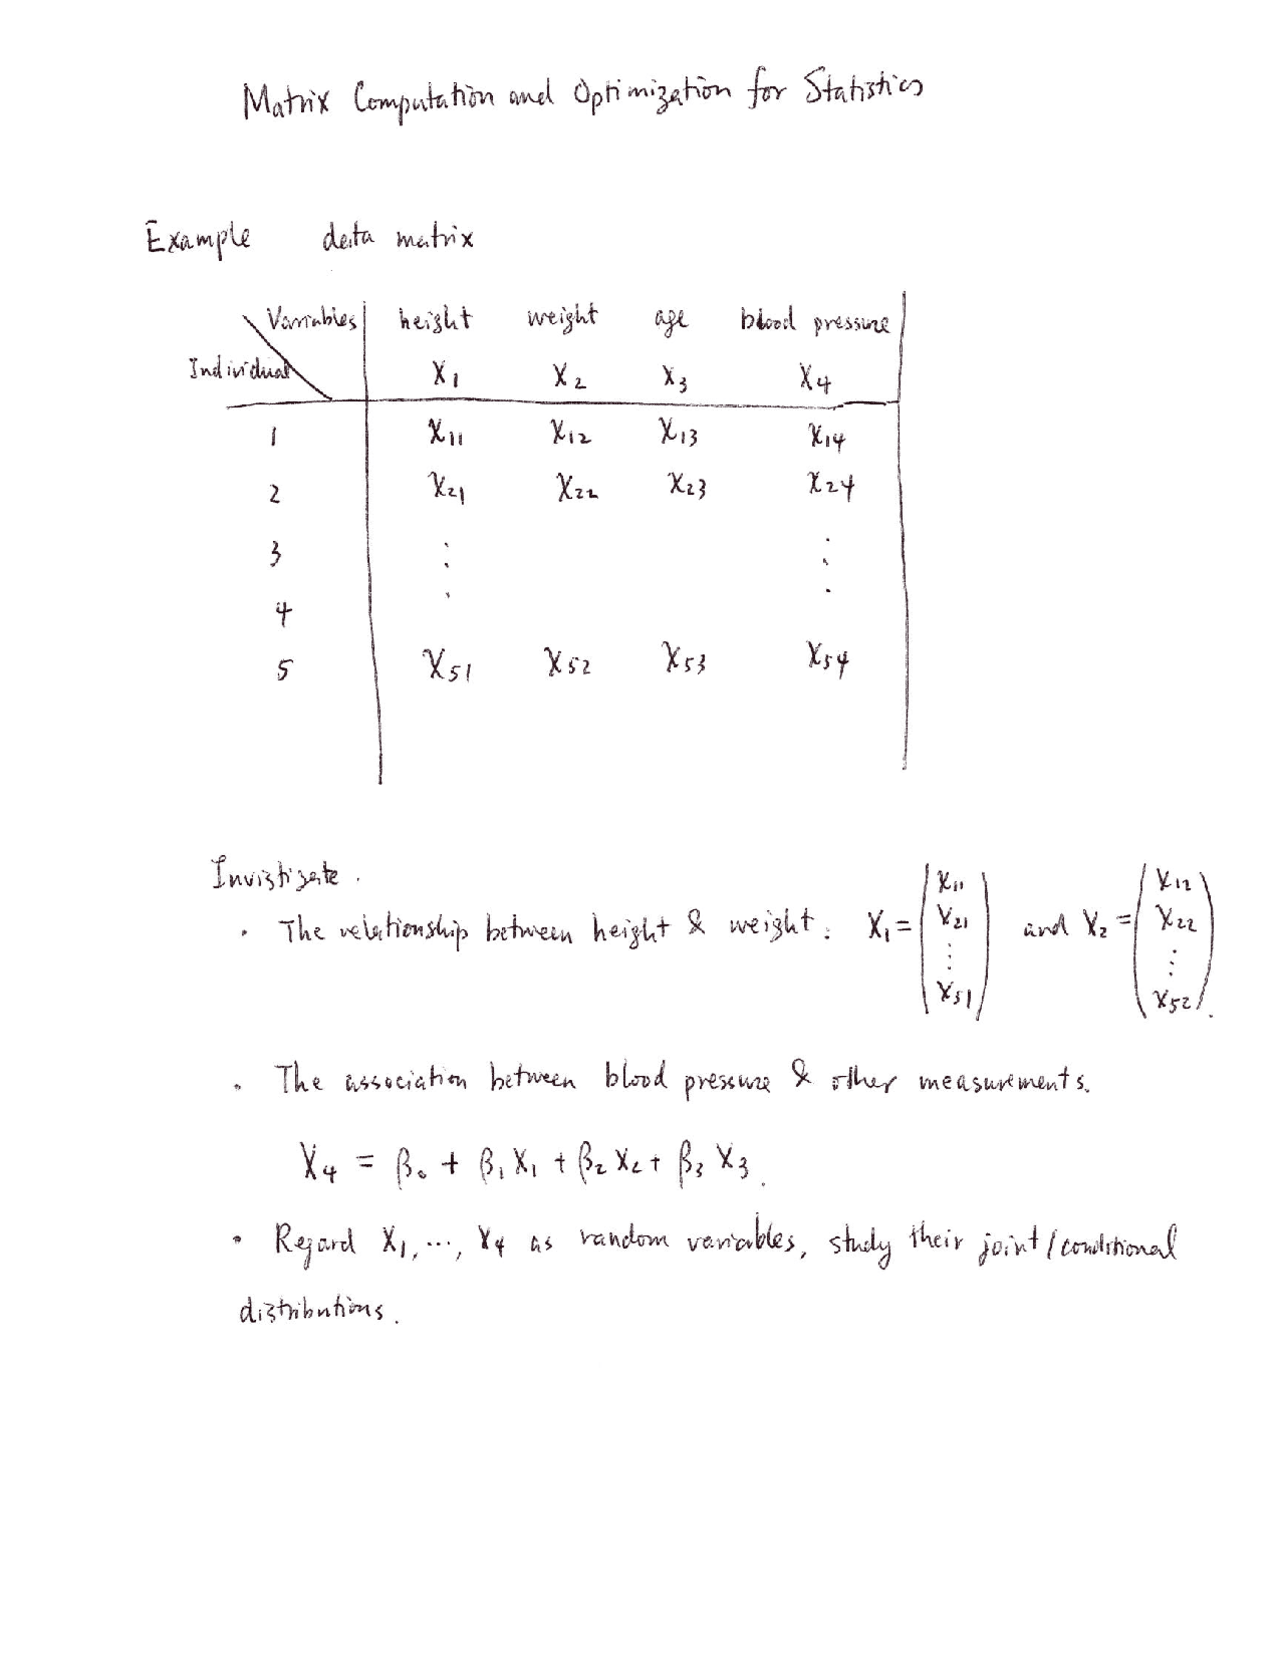 Matrix Computation and Optimization for Statistics
Example data matrix
Variables height weight age blood pressure
Individual X₁ X₂ X₃ X₄
1 X₁₁ X₁₂ X₁₃ X₁₄
2 X₂₁ X₂₂ X₂₃ X₂₄
3 ⋮ ⋮
4
5 X₅₁ X₅₂ X₅₃ X₅₄
Invistigate.
· The relationship between height & weight: X₁ = (X₁₁ X₂₁ ⋮ X₅₁) and X₂ = (X₁₂ X₂₂ ⋮ X₅₂).
· The association between blood pressure & other measurements.
X₄ = β₀ + β₁X₁ + β₂X₂ + β₃X₃.
· Regard X₁, ⋯, X₄ as random variables, study their joint/conditional
distributions.